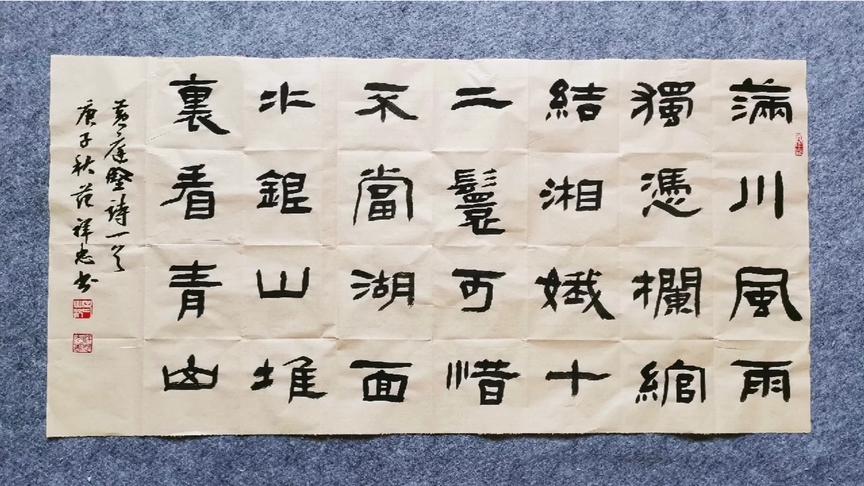 滿川風雨
獨憑欄綰
結湘娥十
二鬟可惜
不當湖面
水銀山堆
裏看青山
黄庭堅詩一首
庚子秋范祥忠书